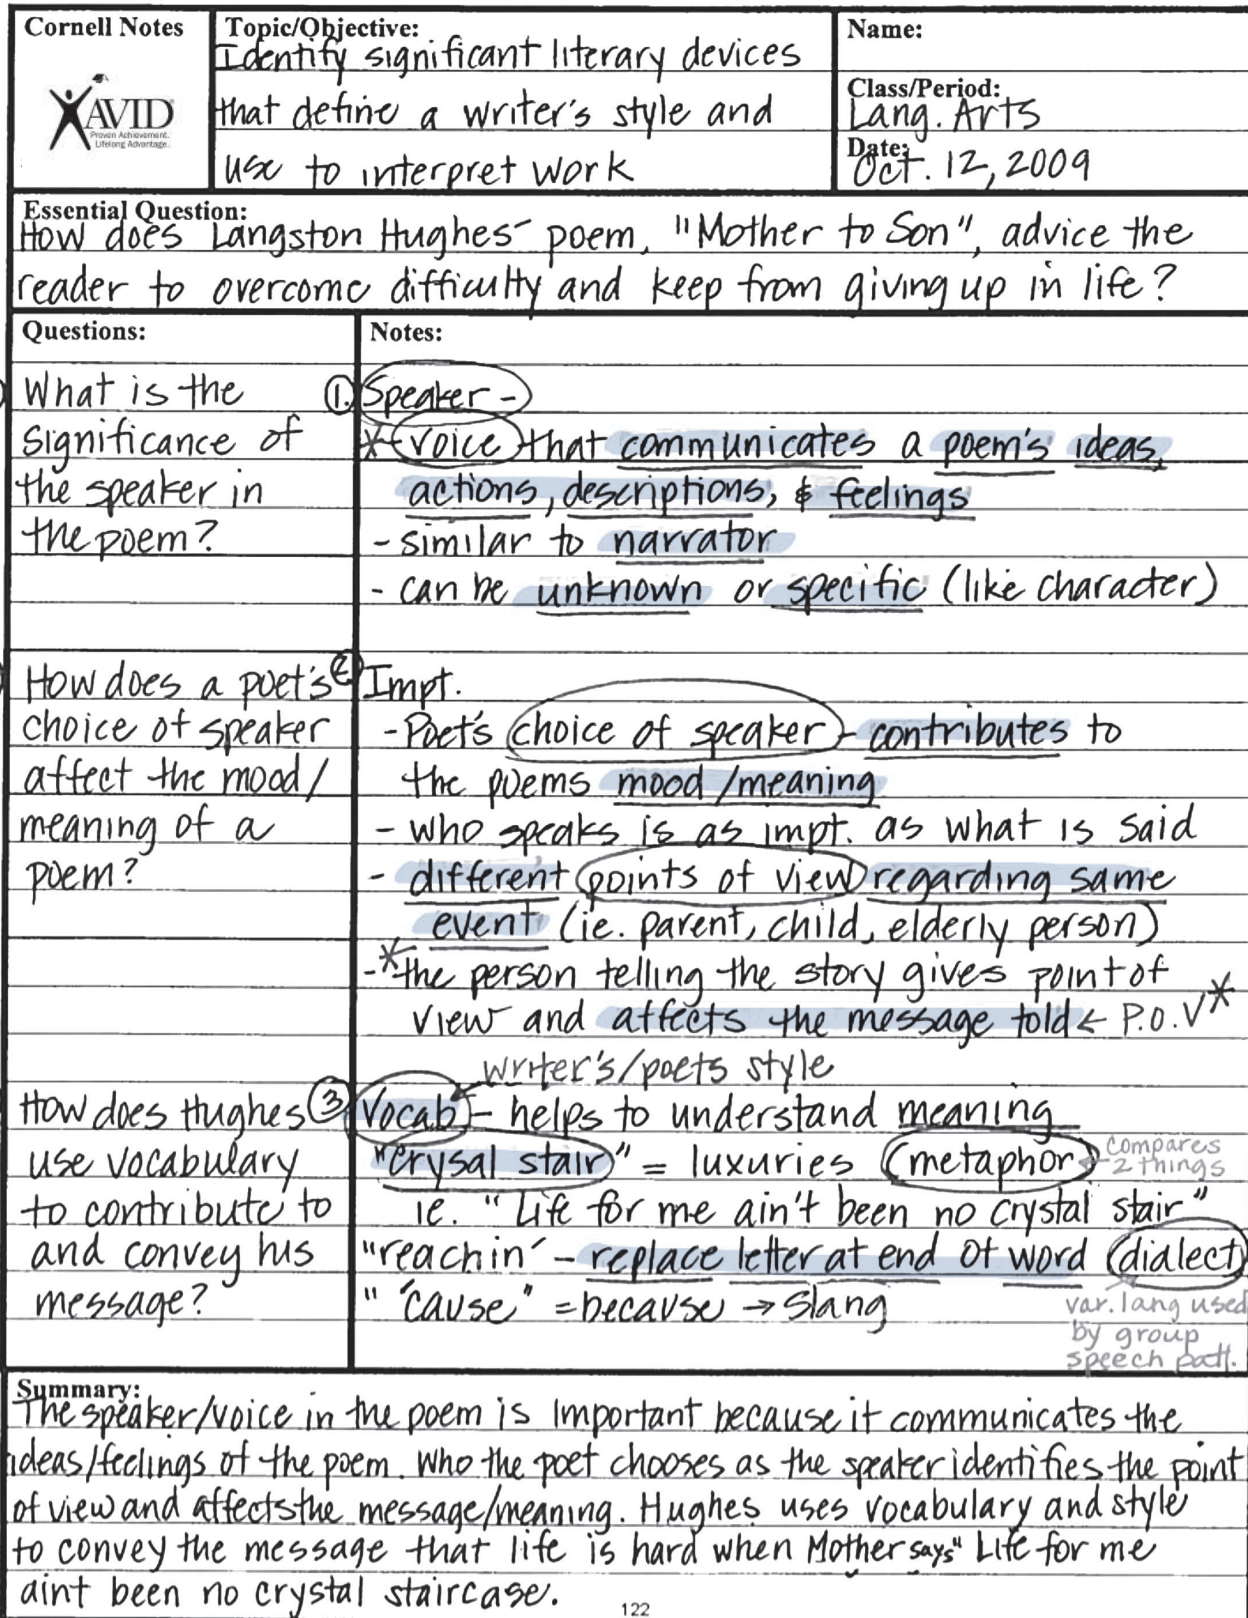 Cornell Notes
AVID
Proven Achievement.
Lifelong Advantage.
Topic/Objective:
Identify significant literary devices
that define a writer's style and
use to interpret work
Name:
Class/Period:
Lang. Arts
Date:
Oct. 12, 2009
Essential Question:
How does Langston Hughes' poem, "Mother to Son", advice the
reader to overcome difficulty and keep from giving up in life?
Questions:
What is the
significance of
the speaker in
the poem?
How does a poet's
choice of speaker
affect the mood/
meaning of a
poem?
How does Hughes
use vocabulary
to contribute to
and convey his
message?
Notes:
1. Speaker -
* - voice that communicates a poem's ideas,
actions, descriptions, & feelings
- similar to narrator
- can be unknown or specific (like character)
2 Impt.
- Poet's choice of speaker - contributes to
the poems mood/meaning
- who speaks is as impt. as what is said
- different points of view regarding same
event (ie. parent, child, elderly person)
- * the person telling the story gives point of
view and affects the message told ← P.O.V *
writer's/poets style
3 Vocab - helps to understand meaning
"crysal stair" = luxuries (metaphor) ← compares
2 things
ie. "Life for me ain't been no crystal stair"
"reachin' - replace letter at end of word (dialect)
" 'cause" = because → slang
var. lang used
by group
speech patt.
Summary:
The speaker/voice in the poem is important because it communicates the
ideas/feelings of the poem. Who the poet chooses as the speaker identifies the point
of view and affects the message/meaning. Hughes uses vocabulary and style
to convey the message that life is hard when Mother says "Life for me
aint been no crystal staircase.
122